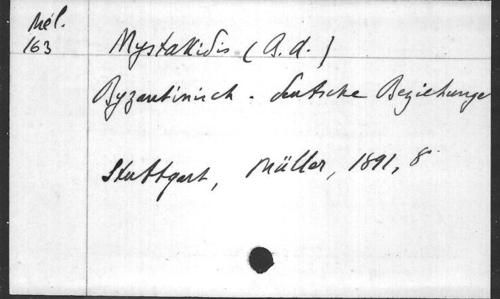 Mél.
163
Mystakidis (B. A.)
Byzantinisch - deutsche Beziehunge
Stuttgart, Müller, 1891, 8°